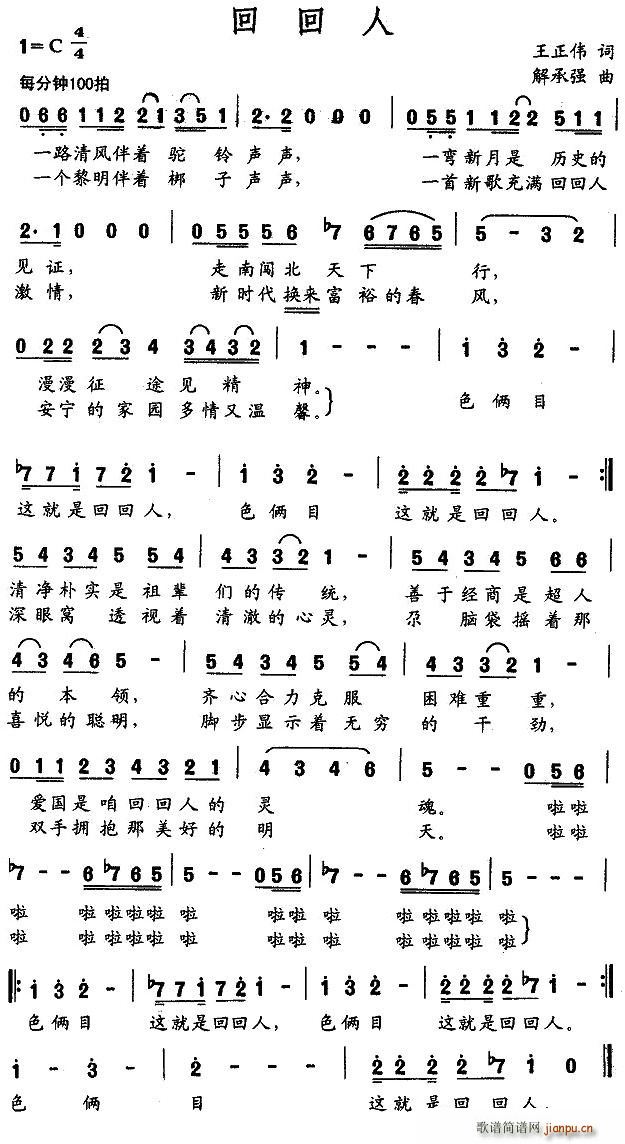 回回人
1=C 4/4
王正伟 词
每分钟100拍
解承强 曲
0 6 6 1 1 2 2 2 1 3 5 1 | 2· 2 0 0 0 | 0 5 5 1 1 2 2 5 1 1 |
一路清风伴着 驼 铃声声, 一弯新月是 历史的
一个黎明伴着 梆 子声声, 一首新歌充满 回回人
2· 1 0 0 0 | 0 5 5 5 5 6 ♭7 6 7 6 5 | 5 - 3 2 |
见证, 走南闯北 天下 行,
激情, 新时代换来富裕的春 风,
0 2 2 2 3 4 3 4 3 2 | 1 - - - | i 3 2 - |
漫漫征 途见精 神。
安宁的家园多情又温 馨。
色俩目
♭7 7 i 7 2 i - | i 3 2 - | 2 2 2 2 2 ♭7 i - :‖
这就是回回人, 色俩目 这就是回回人。
5 4 3 4 5 5 4 | 4 3 3 2 1 - | 5 4 3 4 5 6 6 |
清净朴实是祖辈 们的传 统, 善于经商是超人
深眼窝 透视着 清澈的心灵, 尕 脑袋摇着那
4 3 4 6 5 - | 5 4 3 4 5 5 4 | 4 3 3 2 1 - |
的 本 领, 齐心合力克服 困难重 重,
喜悦的聪明, 脚步显示着无穷 的 干 劲,
0 1 1 2 3 4 3 2 1 | 4 3 4 6 | 5 - - 0 5 6 |
爱国是咱回回人的 灵 魂。 啦啦
双手拥抱那美好的 明 天。 啦啦
♭7 - - 6 ♭7 6 5 | 5 - - 0 5 6 | ♭7 - - 6 ♭7 6 5 | 5 - - - |
啦 啦啦啦啦 啦 啦啦 啦 啦啦啦啦 啦
啦 啦啦啦啦 啦 啦啦 啦 啦啦啦啦 啦
‖: i 3 2 - | ♭7 7 i 7 2 i - | i 3 2 - | 2 2 2 2 2 ♭7 i - :‖
色俩目 这就是回回人, 色俩目 这就是回回人。
i - 3 - | 2 - - - | 2 2 2 2 2 ♭7 i 0 ‖
色 俩 目 这就是 回 回人。
歌谱简谱网
jianpu.cn